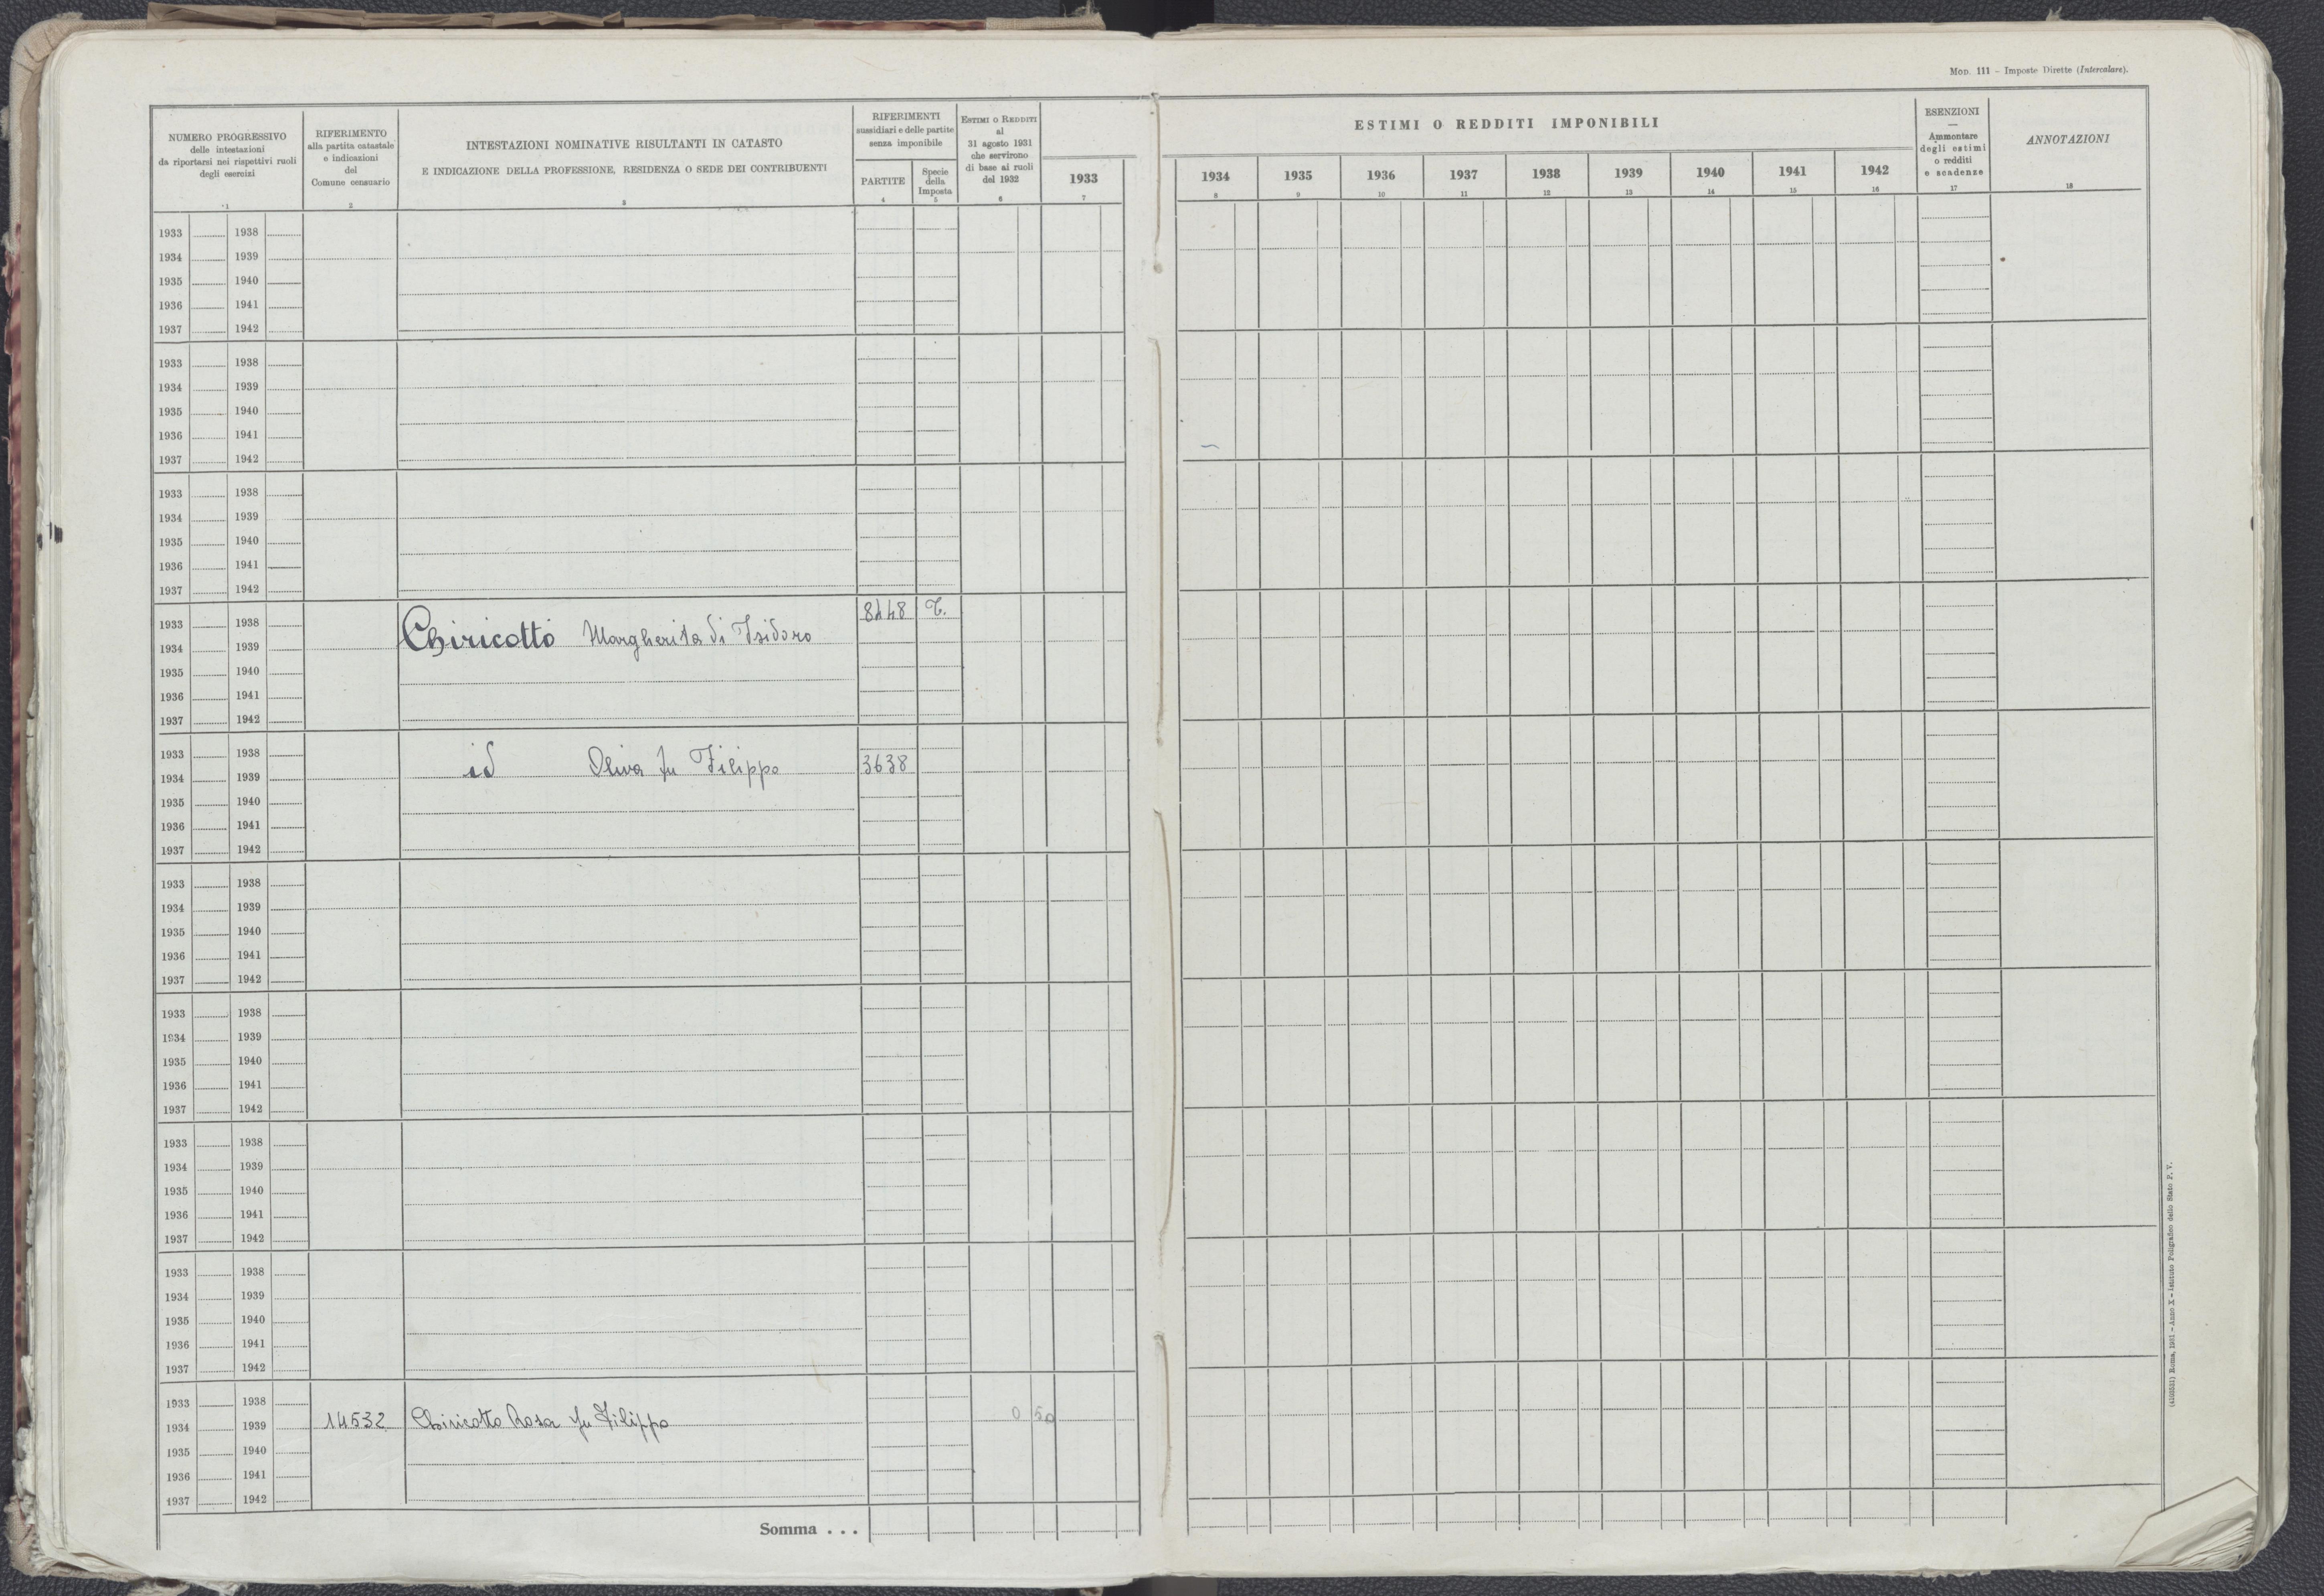 Mod. 111 – Imposte Dirette (Intercalare).
NUMERO PROGRESSIVO
delle intestazioni
da riportarsi nei rispettivi ruoli
degli esercizi
1
RIFERIMENTO
alla partita catastale
e indicazioni
del
Comune censuario
2
INTESTAZIONI NOMINATIVE RISULTANTI IN CATASTO
E INDICAZIONE DELLA PROFESSIONE, RESIDENZA O SEDE DEI CONTRIBUENTI
3
RIFERIMENTI
sussidiari e delle partite
senza imponibile
PARTITE
4
Specie
della
Imposta
5
ESTIMI O REDDITI
al
31 agosto 1931
che servirono
di base ai ruoli
del 1932
6
1933
7
ESTIMI O REDDITI IMPONIBILI
1934 1935 1936 1937 1938 1939 1940 1941 1942
8 9 10 11 12 13 14 15 16
ESENZIONI
—
Ammontare
degli estimi
o redditi
e scadenze
17
ANNOTAZIONI
18
1933 1938
1934 1939
1935 1940
1936 1941
1937 1942
1933 1938
1934 1939
1935 1940
1936 1941
1937 1942
1933 1938
1934 1939
1935 1940
1936 1941
1937 1942
1933 1938 8448 T.
1934 1939 Chiricotto Margherita di Isidoro
1935 1940
1936 1941
1937 1942
1933 1938
1934 1939 id Oliva fu Filippo 3638
1935 1940
1936 1941
1937 1942
1933 1938
1934 1939
1935 1940
1936 1941
1937 1942
1933 1938
1934 1939
1935 1940
1936 1941
1937 1942
1933 1938
1934 1939
1935 1940
1936 1941
1937 1942
1933 1938
1934 1939
1935 1940
1936 1941
1937 1942
1933 1938
1934 1939 14532 Chiricotto Rosa fu Filippo 0 50
1935 1940
1936 1941
1937 1942
Somma . . .
Roma, 1931 – Anno X – Istituto Poligrafico dello Stato P. V.